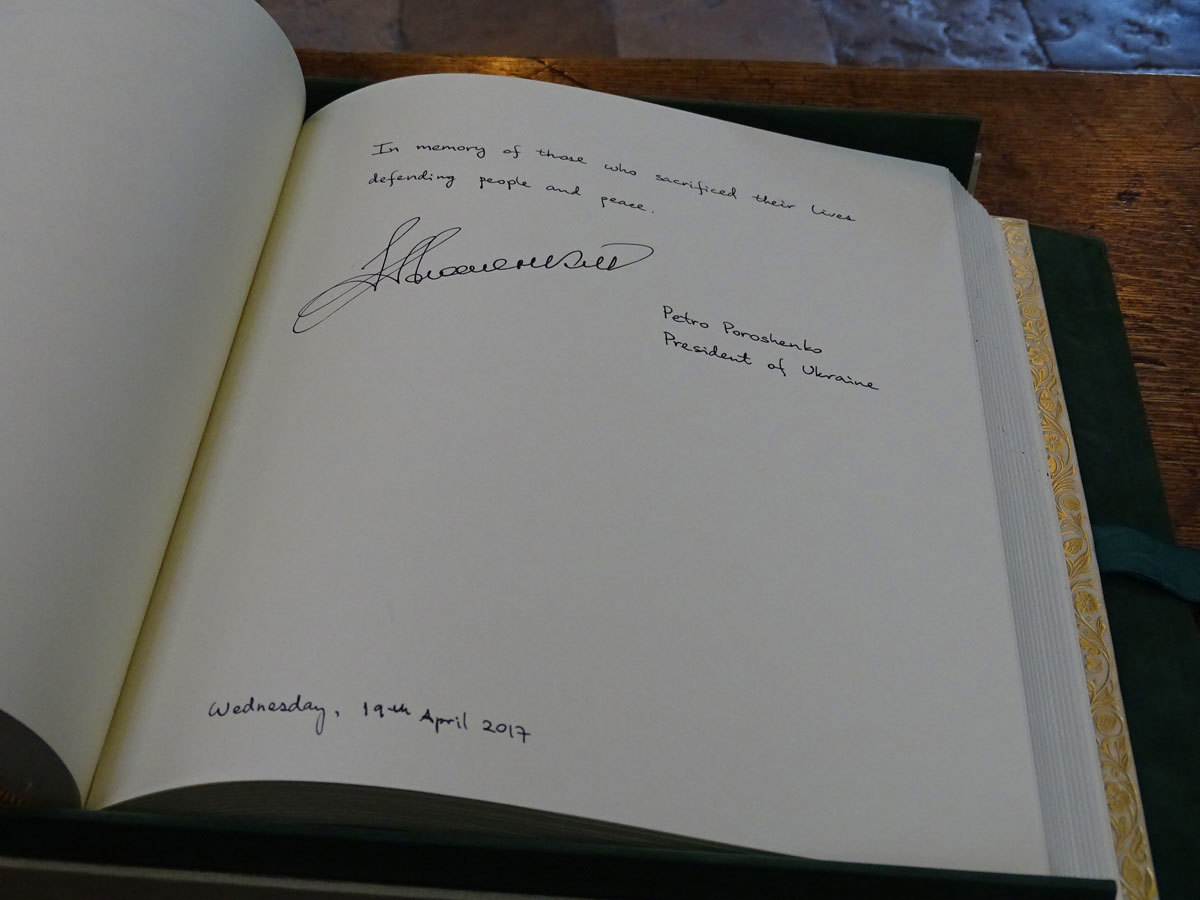 In memory of those who sacrificed their lives
defending people and peace.
Petro Poroshenko
President of Ukraine
Wednesday, 19th April 2017